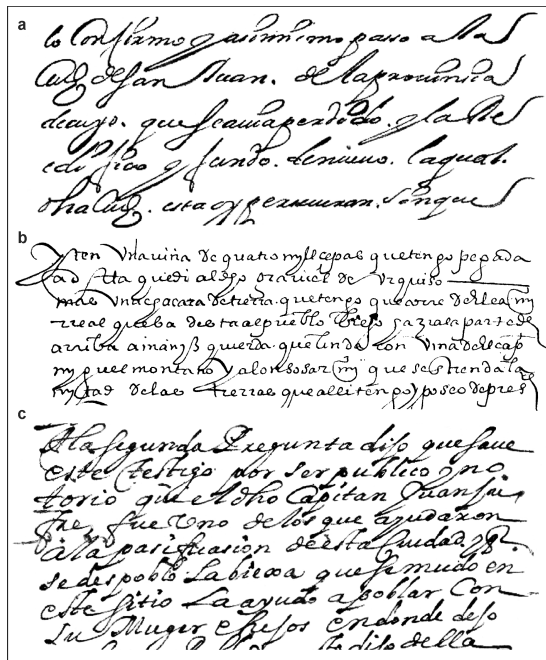 a
lo Confirmo y asimismo paso a la
Ciud de San Juan. de la provincia
de cuyo. que se auia perdido. y la Re
edifico y fundo. de nueuo. la qual.
dha Ciud. esta oy perseueran. son que
b
Yten Una viña de quatro mill cepas que tengo pegada
a
mas Una chacara de tierra. que tengo que corre del cam
rreal que ba desta al pueblo Viejo hazia la parte de
arriba a man yzquierda. que linda con Viña del cap
miguel montano y alonso sar que se estiende la
mitad de las tierras que alli tengo y poseo de pres
c
A la segunda Pregunta dijo que saue
este testigo por ser publico y no
torio que el dho Capitan Juan Ju
fre, fue Uno de los que ayudaron
a la pasificasion de esta Ciudad y q
se despoblo la biexa que se mudo en
este sitio La ayudo a poblar Con
su Muger e hijos en donde dejo